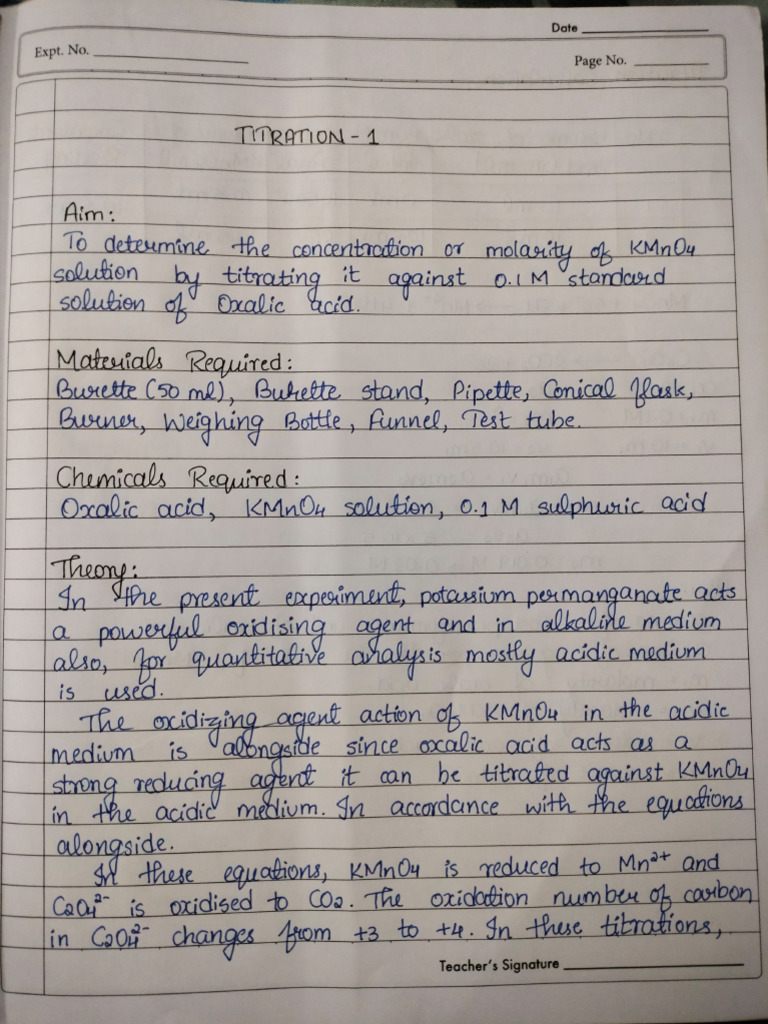 Date
Expt. No.
Page No.
TITRATION - 1
Aim:
To determine the concentration or molarity of KMnO4
solution by titrating it against 0.1 M standard
solution of Oxalic acid.
Materials Required:
Burette (50 ml), Burette stand, Pipette, Conical flask,
Burner, Weighing Bottle, Funnel, Test tube.
Chemicals Required:
Oxalic acid, KMnO4 solution, 0.1 M sulphuric acid
Theory:
In the present experiment, potassium permanganate acts
a powerful oxidising agent and in alkaline medium
also, for quantitative analysis mostly acidic medium
is used.
The oxidizing agent action of KMnO4 in the acidic
medium is alongside since oxalic acid acts as a
strong reducing agent it can be titrated against KMnO4
in the acidic medium. In accordance with the equations
alongside.
In these equations, KMnO4 is reduced to Mn2+ and
C2O4²⁻ is oxidised to CO2. The oxidation number of carbon
in C2O4²⁻ changes from +3 to +4. In these titrations,
Teacher's Signature